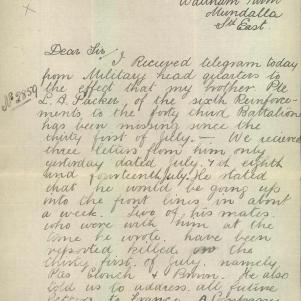 Waltham Farm
Mundalla
Sth East.
Dear Sir, I Recieved telegram today
from Military head quarters to
the effect that my brother Pte
No 2859
L. A. Packer, of the sixth Reinforce-
ments to the forty third Battalion
has been missing since the
thirty first of July. — We recieved
three letters from him only
yesterday dated July. 7th eighth
and fourteenth July. He stated
that he would be going up
into the front lines in about
a week. Two of his mates
who were with him at the
time he wrote, have been
reported killed on the
thirty first of July, namely
Ptes Clouch & Brown. He also
told us to address all future
letters to France. A